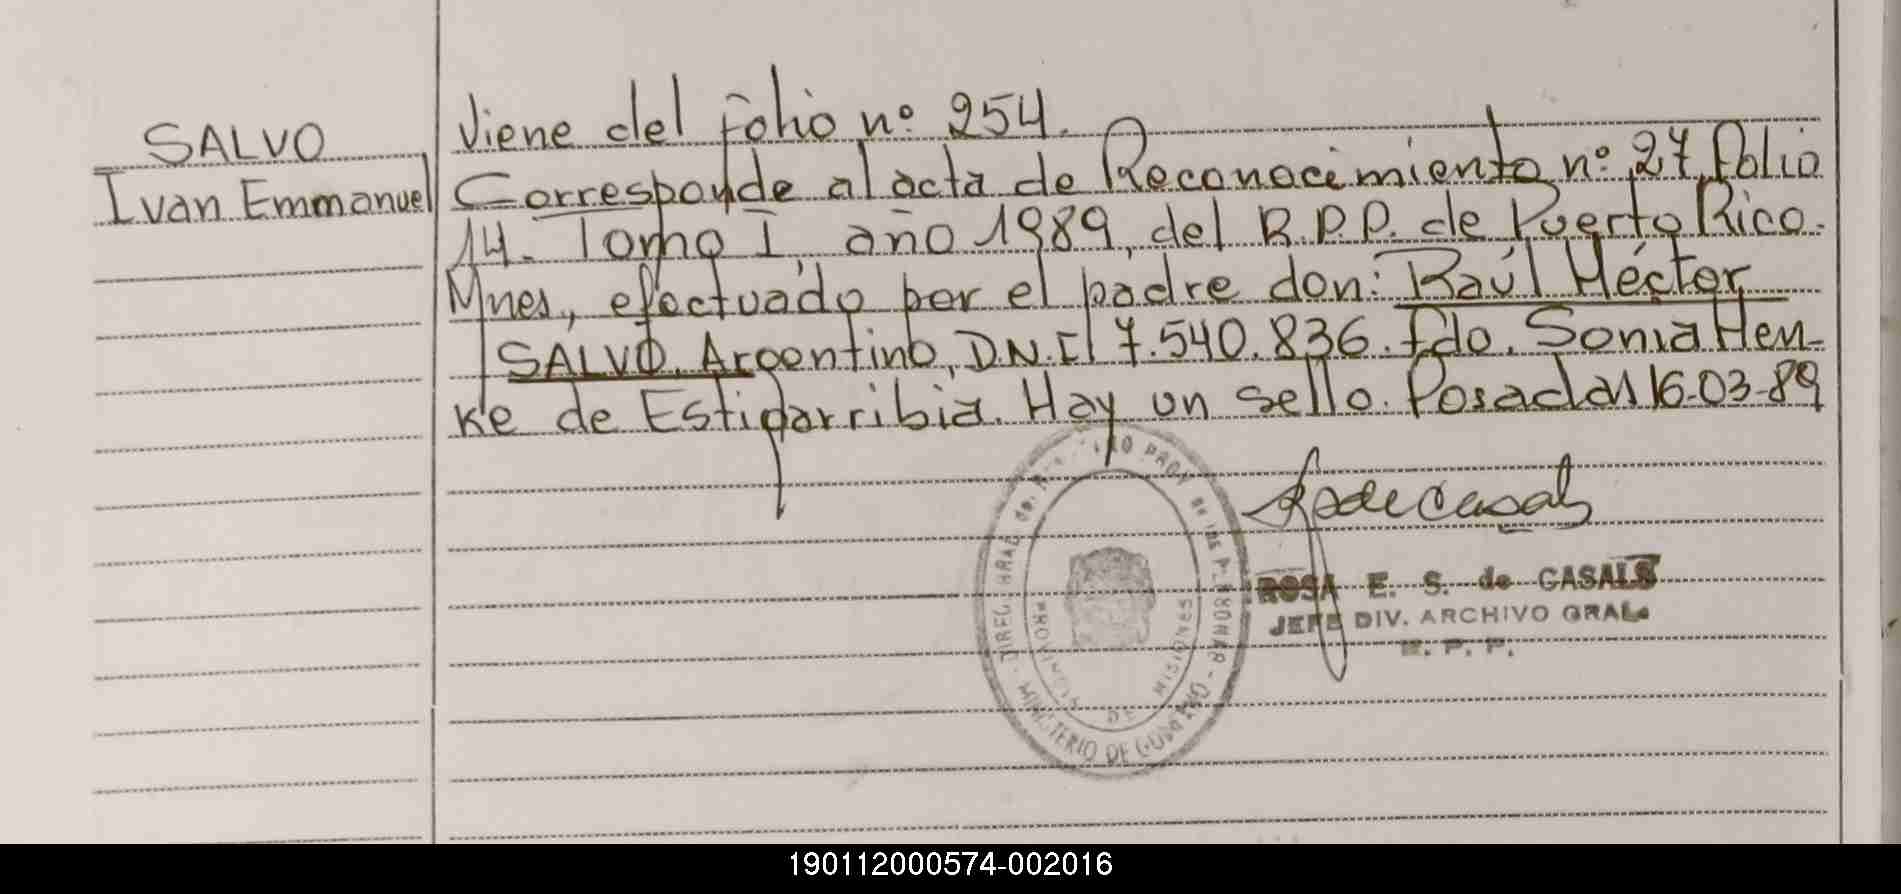 SALVO
Ivan Emmanuel
Viene del folio nº 254.
Corresponde al acta de Reconocimiento nº 27, Folio
14. Tomo I, año 1989, del R.P.P. de Puerto Rico.
Mnes, efectuado por el padre don: Raúl Héctor
SALVO, Argentino, D.N.I 7.540.836. fdo. Sonia Hen-
ke de Estigarribia. Hay un sello. Posadas 16-03-89
PROVINCIA DE MISIONES
MINISTERIO DE GOBIERNO
ROSA E. S. de CASALS
JEFE DIV. ARCHIVO GRAL.
R. P. P.
190112000574-002016